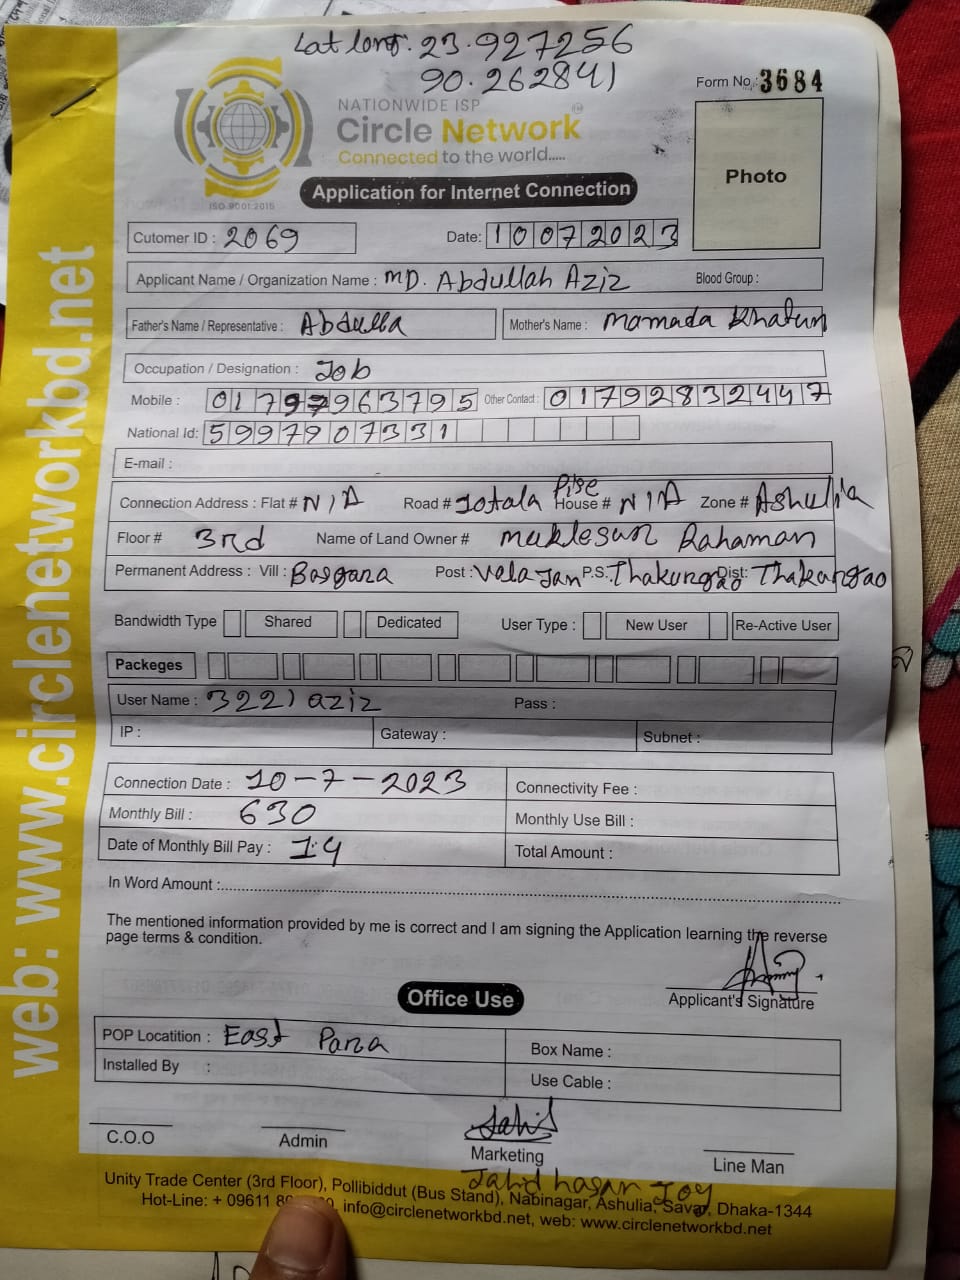 Lat long. 23.927256
90.262841
Form No. 3684
NATIONWIDE ISP
Circle Network
Connected to the world.....
ISO 9001:2015
Application for Internet Connection
Photo
Cutomer ID : 2069
Date: 10072023
Applicant Name / Organization Name : MD. Abdullah Aziz
Blood Group :
Father's Name / Representative : Abdulla
Mother's Name : Momada Khatun
Occupation / Designation : Job
Mobile : 01799963795
Other Contact : 01792832447
National Id: 5997907331
E-mail :
Connection Address : Flat # N/A Road # Jotala Pise House # N/A Zone # Ashulia
Floor # 3rd Name of Land Owner # Muklesur Rahaman
Permanent Address : Vill : Basgara Post : Vela Jan P.S. Thakurgao Dist: Thakurgao
Bandwidth Type Shared Dedicated User Type : New User Re-Active User
Packeges
User Name : 3221 aziz Pass :
IP : Gateway : Subnet :
Connection Date : 10-7-2023 Connectivity Fee :
Monthly Bill : 630 Monthly Use Bill :
Date of Monthly Bill Pay : 14 Total Amount :
In Word Amount :
The mentioned information provided by me is correct and I am signing the Application learning the reverse
page terms & condition.
Applicant's Signature
Office Use
POP Locatition : East Para Box Name :
Installed By : Use Cable :
C.O.O
Admin
Marketing
Line Man
Jahid hasan Joy
Unity Trade Center (3rd Floor), Pollibiddut (Bus Stand), Nabinagar, Ashulia, Savar, Dhaka-1344
Hot-Line: + 09611 info@circlenetworkbd.net, web: www.circlenetworkbd.net
web: www.circlenetworkbd.net